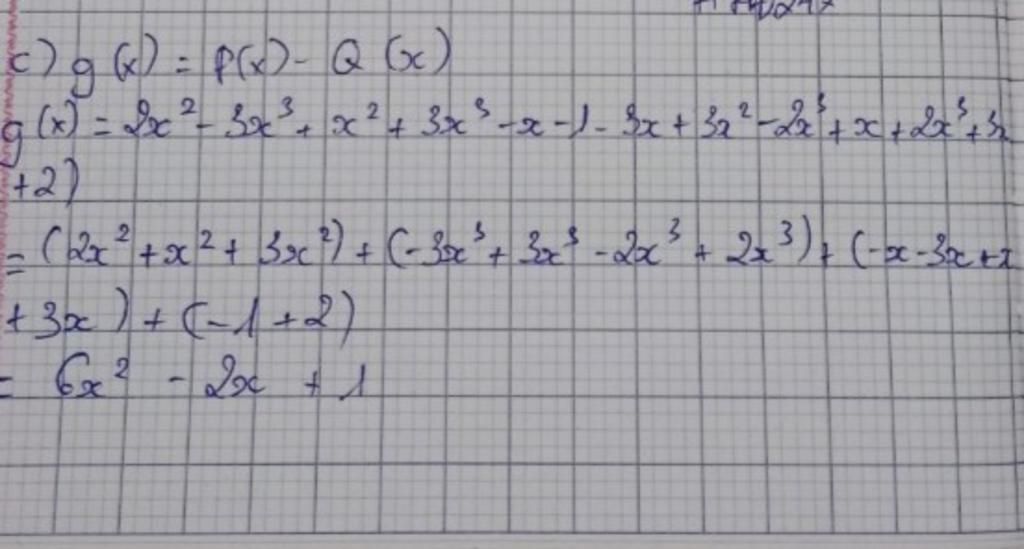 c) g(x) = P(x) - Q(x)
g(x) = 2x² - 3x³ + x² + 3x³ - x - 1 - 3x + 3x² - 2x³ + x + 2x³ + 3x
+2)
= (2x² + x² + 3x²) + (-3x³ + 3x³ - 2x³ + 2x³) + (-x - 3x + x
+ 3x) + (-1 + 2)
= 6x² - 2x + 1